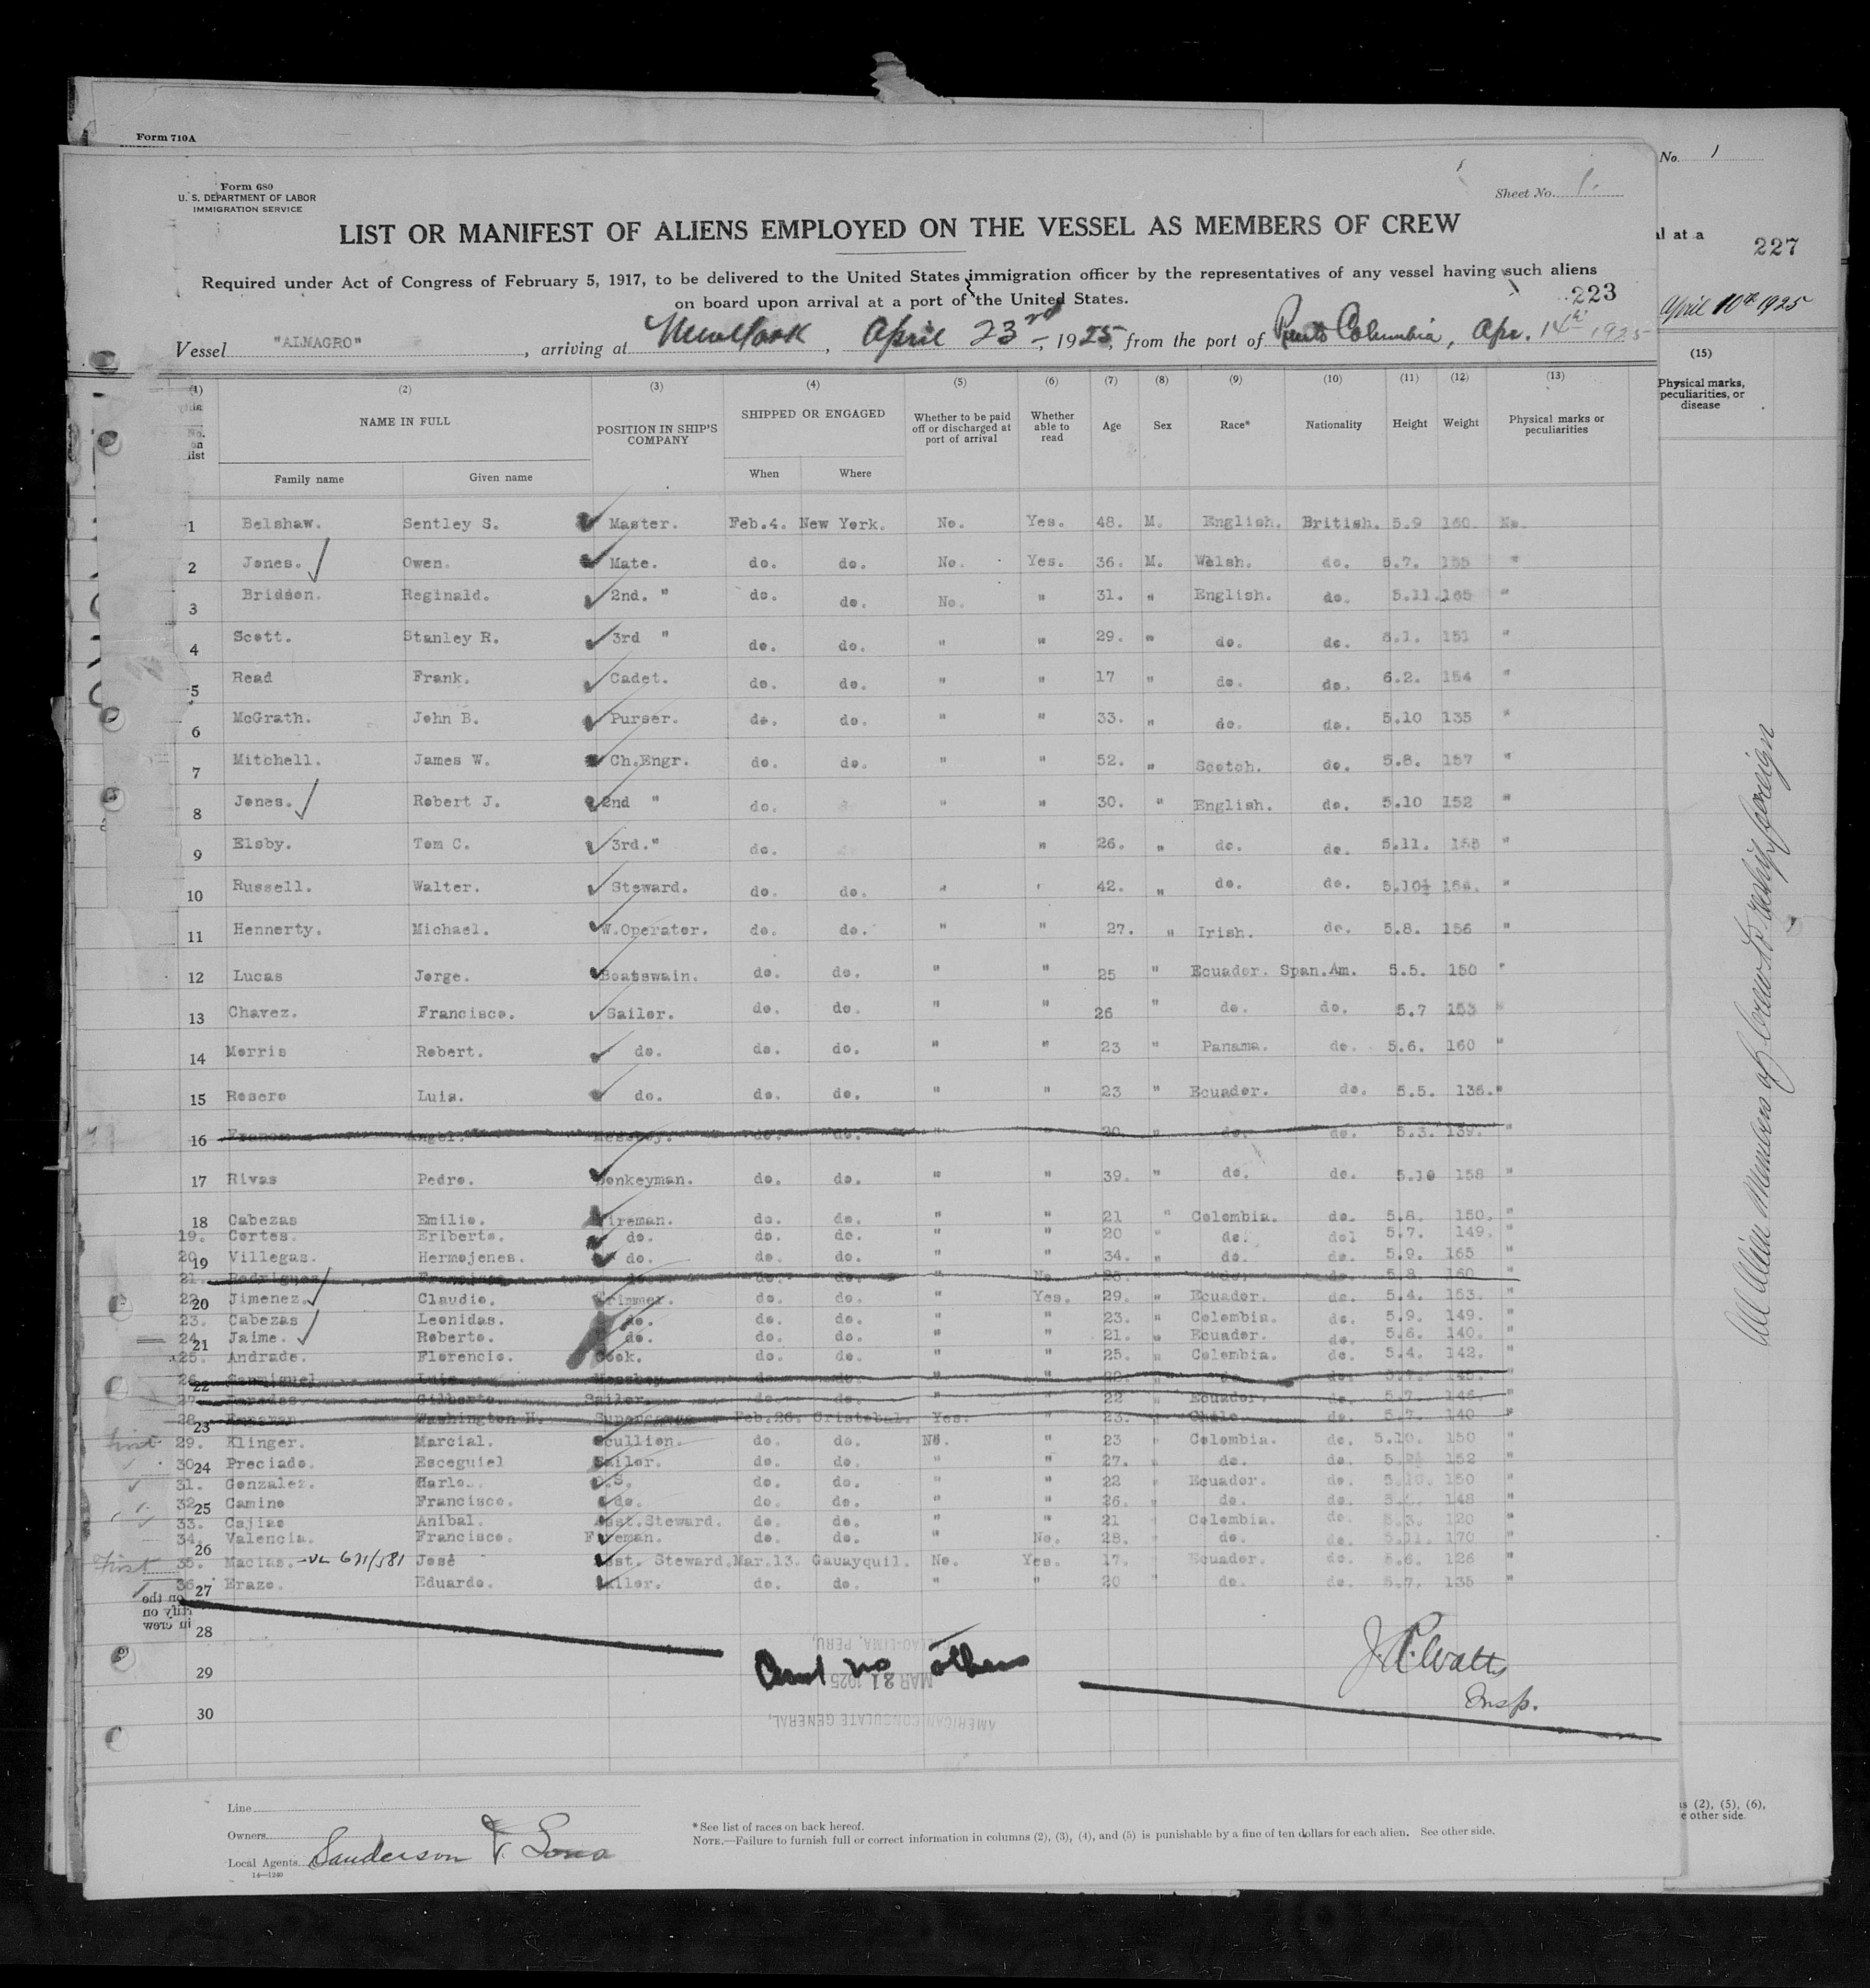 Form 710A
No. 1
Form 680
U. S. DEPARTMENT OF LABOR
IMMIGRATION SERVICE
Sheet No. 1.
LIST OR MANIFEST OF ALIENS EMPLOYED ON THE VESSEL AS MEMBERS OF CREW
al at a
227
Required under Act of Congress of February 5, 1917, to be delivered to the United States immigration officer by the representatives of any vessel having such aliens
on board upon arrival at a port of the United States.
223
April 10th 1925
Vessel "ALMAGRO", arriving at New York, April 23rd, 1925, from the port of Puerto Columbia, Apr. 14th 1925
(1) (2) (3) (4) (5) (6) (7) (8) (9) (10) (11) (12) (13) (15)
No. on list NAME IN FULL POSITION IN SHIP'S COMPANY SHIPPED OR ENGAGED Whether to be paid off or discharged at port of arrival Whether able to read Age Sex Race* Nationality Height Weight Physical marks or peculiarities
Physical marks, peculiarities, or disease
Family name Given name When Where
1 Belshaw. Sentley S. Master. Feb.4. New York. No. Yes. 48. M. English. British. 5.9 160. No.
2 Jones. Owen. Mate. do. do. No. Yes. 36. M. Welsh. do. 5.7. 155 "
3 Bridson. Reginald. 2nd. " do. do. No. " 31. " English. do. 5.11. 165 "
4 Scott. Stanley R. 3rd " do. do. " " 29. " do. do. 151 "
5 Read Frank. Cadet. do. do. " " 17 " do. do. 6.2. 154 "
6 McGrath. John B. Purser. do. do. " " 33. " do. do. 5.10 135 "
7 Mitchell. James W. Ch.Engr. do. do. " " 52. " Scotch. do. 5.8. 157 "
8 Jones. Robert J. 2nd " do. " " 30. " English. do. 5.10 152 "
9 Elsby. Tom C. 3rd." do. " 26. " do. do. 5.11. 155 "
10 Russell. Walter. Steward. do. do. " " 42. " do. do. 5.10½ "
11 Hennerty. Michael. W.Operator. do. do. " " 27. " Irish. do. 5.8. 156 "
12 Lucas Jorge. Boatswain. do. do. " " 25 " Ecuador. Span.Am. 5.5. 150 "
13 Chavez. Francisco. Sailor. do. do. " " 26 " do. do. 5.7 153 "
14 Morris Robert. do. do. do. " " 23 " Panama. do. 5.6. 160 "
15 Rosero Luis. do. do. do. " " 23 " Ecuador. do. 5.5. 136. "
16 Angel. Messboy. do. do. " " 20 " do. do. 5.3. 139. "
17 Rivas Pedro. Donkeyman. do. do. " " 39. " do. do. 5.10 158 "
18 Cabezas Emilio. Fireman. do. do. " " 21 " Colombia. do. 5.8. 150. "
19. Cortes. Eriberto. do. do. do. " " 20 " do. do1 5.7. 149. "
20. 19 Villegas. Hermojenes. do. do. do. " " 34. " do. do. 5.9. 165 "
21. Rodriguez Francisco do. do. do. " No. " do. do. 5.8. 160 "
22. 20 Jimenez. Claudio. Trimmer. do. do. " Yes. 29. " Ecuador. do. 5.4. 153. "
23. Cabezas Leonidas. do. do. do. " " 23. " Colombia. do. 5.9. 149. "
24. 21 Jaime. Roberto. do. do. do. " " 21. " Ecuador. do. 5.6. 140. "
25. Andrade. Florencio. Cook. do. do. " " 25. " Colombia. do. 5.4. 142. "
26. 22 Sanmiguel Luis Messboy do. do. " " do. do. "
27. Paredes. Gilberto. Sailor. do. do. " " 22 " Ecuador. do. 5.7. 146. "
28. 23 Washington H. Supercargo Feb.26. Cristobal. Yes. " 23. " Chile. do. 5.7. 140 "
First 29. Klinger. Marcial. Scullion. do. do. No. " 23 " Colombia. do. 5.10. 150 "
30. 24 Preciado. Esceguiel Sailor. do. do. " " 27. " do. do. 152 "
31. Gonzalez. O.S. do. do. " " 22 " Ecuador. do. 150 "
32. 25 Camino Francisco. do. do. do. " " 26. " do. do. 148 "
33. Cajiao Anibal. Asst.Steward. do. do. " " 21 " Colombia. do. 120 "
34. 26 Valencia. Francisco. Fireman. do. do. " No. 28. " do. do. 5.11. 170 "
First 35. Macias. -VL 621/581 José Asst. Steward. Mar.13. Gauayquil. No. Yes. 17. " Ecuador. do. 5.6. 126 "
36. 27 Erazo. Eduardo. Sailor. do. do. " " 20 " do. do. 5.7. 135 "
28
29
30
And no others
CALLAO-LIMA, PERU,
MAR 21 1925
AMERICAN CONSULATE GENERAL,
J.C. Watts
Insp.
All Alien Members of Crew
Line
Owners
Local Agents Sanderson & Sons
14—1240
* See list of races on back hereof.
NOTE.—Failure to furnish full or correct information in columns (2), (3), (4), and (5) is punishable by a fine of ten dollars for each alien. See other side.
ns (2), (5), (6),
e other side.